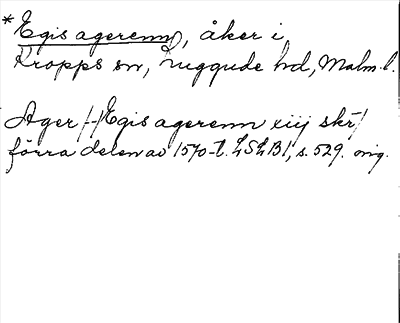 *Egis agerenn, åker i
Kropps sn, Luggude hd, Malm. l.
Ager /-/ Egis agerenn xiij skr /
förra delen av 1570-t. LSLB1, s. 529. orig.